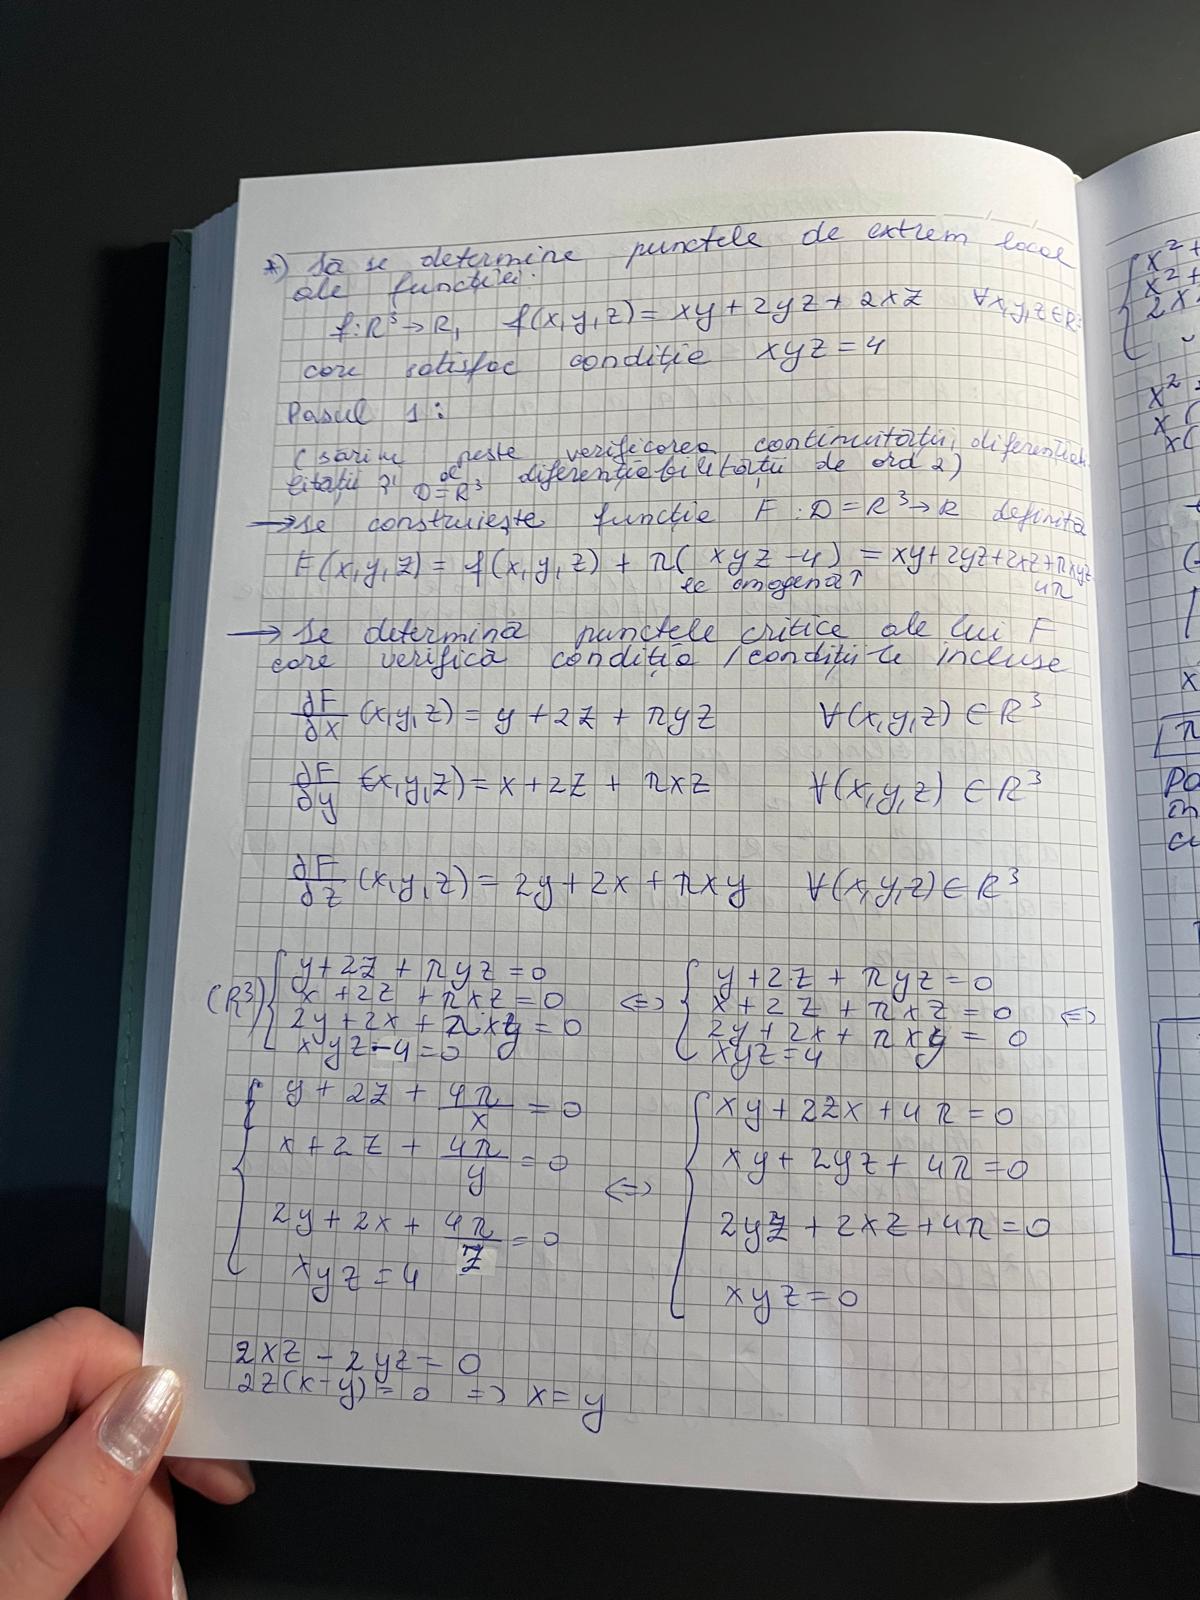 *) Să se determine punctele de extrem local
ale funcției:
f: R³ → R, f(x,y,z) = xy + 2yz + 2xz ∀x,y,z ∈ R³
care satisfac condiție xyz = 4
Pasul 1:
(sarim peste verificarea continuitații, diferenția-
litații și diferențiabilitații de ord 2)
D=R³
→ se construiește funcție F: D = R³ → R definită
F(x,y,z) = f(x,y,z) + π(xyz - 4) = xy + 2yz + 2xz + πxyz
se omogenă ↑ 4π
→ Se determină punctele critice ale lui F
care verifică condiția /condiții-le incluse
∂F/∂x (x,y,z) = y + 2z + πyz ∀(x,y,z) ∈ R³
∂F/∂y (x,y,z) = x + 2z + πxz ∀(x,y,z) ∈ R³
∂F/∂z (x,y,z) = 2y + 2x + πxy ∀(x,y,z) ∈ R³
y + 2z + πyz = 0 y + 2z + πyz = 0
(R³) x + 2z + πxz = 0 <=> x + 2z + πxz = 0 <=>
2y + 2x + πxy = 0 2y + 2x + πxy = 0
xyz - 4 = 0 xyz = 4
y + 2z + 4π/x = 0 xy + 2zx + 4π = 0
x + 2z + 4π/y = 0 <=> xy + 2yz + 4π = 0
2y + 2x + 4π/z = 0 2yz + 2xz + 4π = 0
xyz = 4 xyz = 0
2xz - 2yz = 0
2z(x - y) = 0 => x = y
x² +
x² +
2x
x²
x (
x(